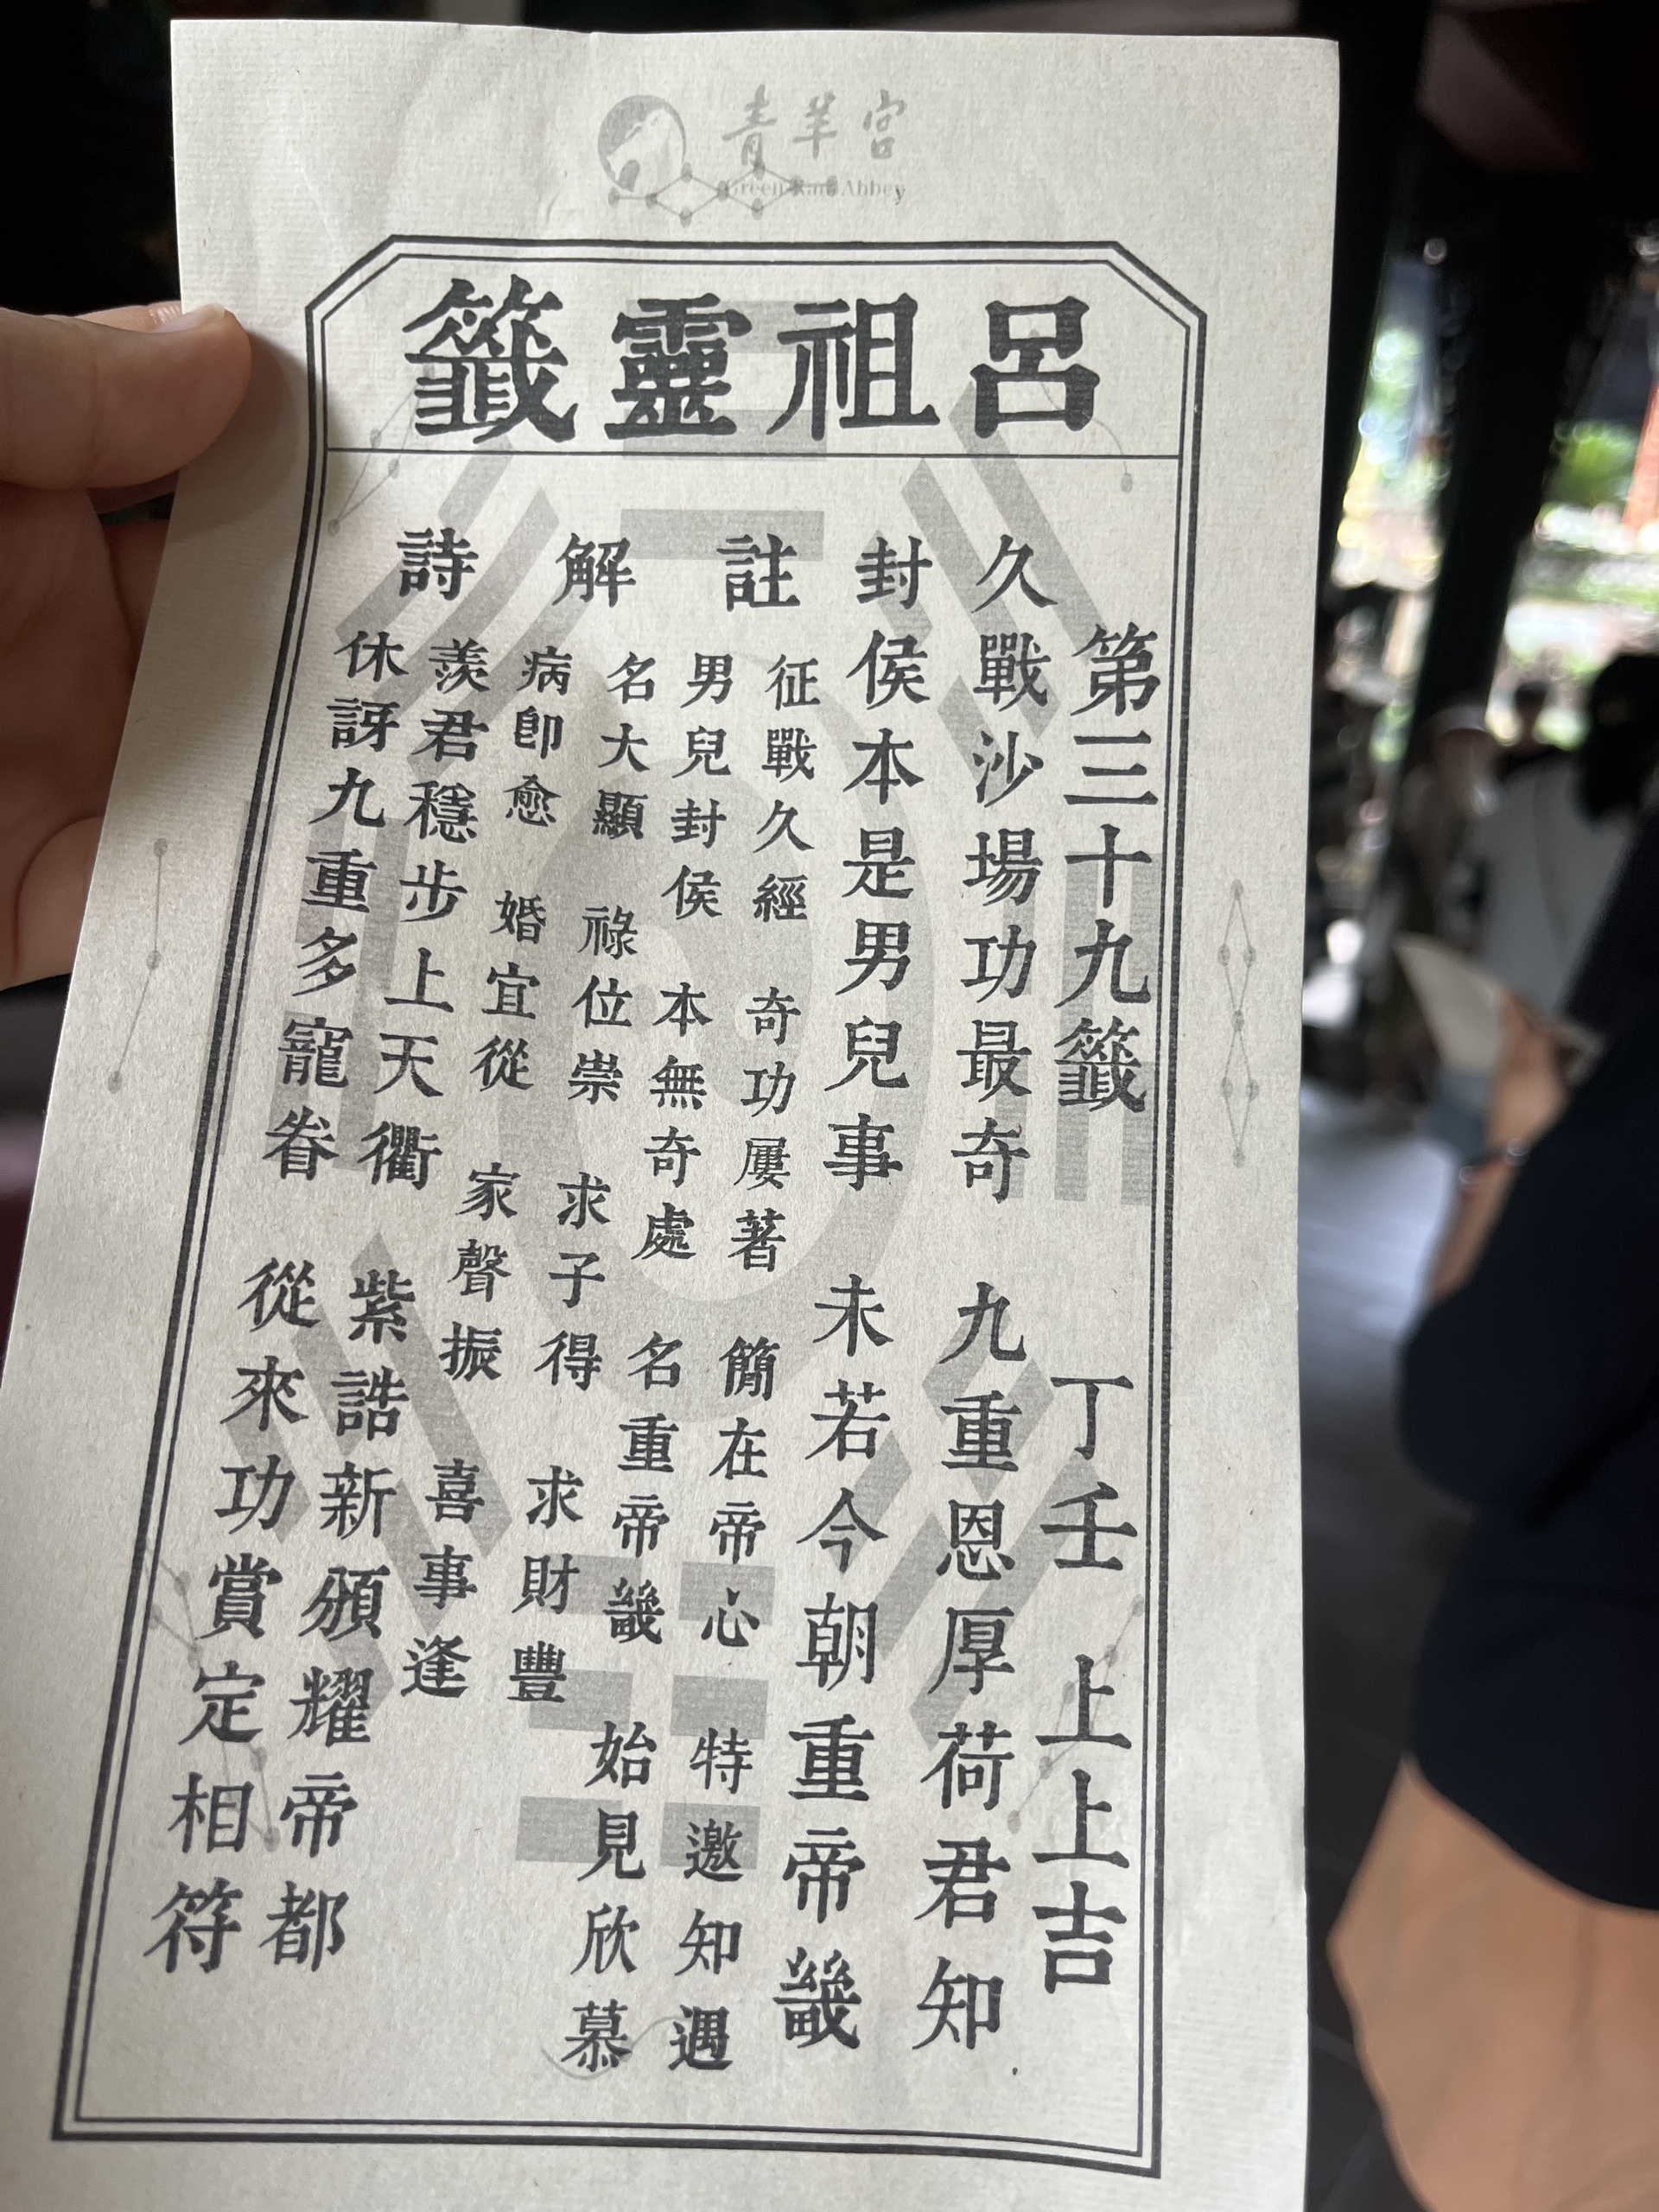 青羊宮
Green Ram Abbey
呂祖靈籤
第三十九籤 丁壬 上上吉
久戰沙場功最奇 九重恩厚荷君知
封侯本是男兒事 未若今朝重帝畿
註 征戰久經 奇功屢著 簡在帝心 特邀知遇
男兒封侯 本無奇處 名重帝畿 始見欣慕
解 名大顯 祿位崇 求子得 求財豐
病卽愈 婚宜從 家聲振 喜事逢
詩 羨君穩步上天衢 紫誥新頒耀帝都
休訝九重多寵眷 從來功賞定相符